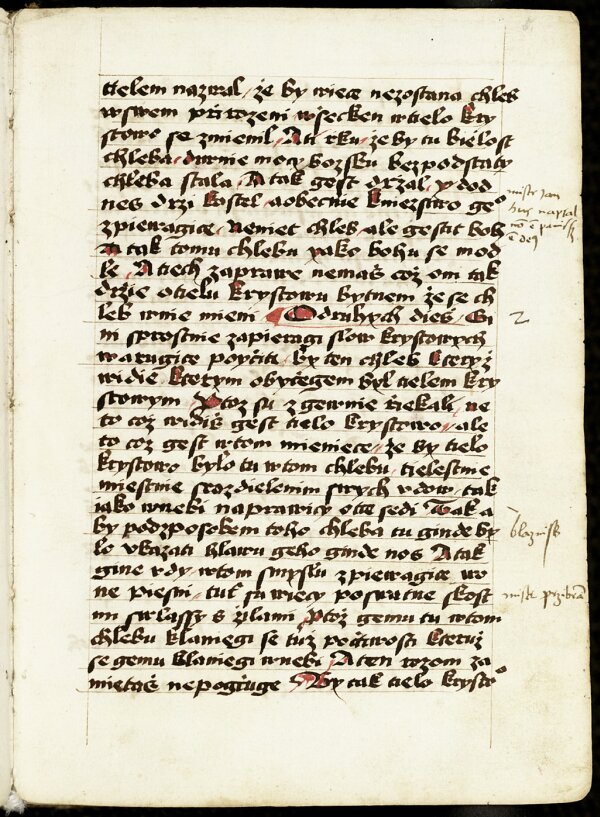 tielem nazwal / že by wiece nezostana chleb
wswem přirozeni wšecken wtielo kry
stowo se zmienil / A ti rku / že by tu bielost
chleba / diwnie mocy bozsku bez podstaty
chleba stala / A tak gest držal / y dod
nes drzi kostel / a obecnie kniezstwo geo
zpiewagice / Neniet chleb / ale gestit boh
A tak tomu chlebu yako bohu se mod
le / A tiech zaprawe nemaš coz oni tak
drzie otielu krystowu bytnem že se ch
leb wnie mieni / O druhych dies
ni sprostnie zapieragi slow krystowych
warugice poyčiti / by ten chleb kteryž
widie kterym obyčegem byl tielem kry
stowym / Ptoz su zgewnie řiekali / ne
to coz widiš gest tielo krystowo / ale
to coz gest wtom mieniece / že by tielo
krystowo bylo tu wtom chlebu / tielestnie
miestnie srozdielenim swych vdow / tak
jako wnebi naprawicy otce sedi Tak a
by podzposobem toho chleba tu ginde by
lo vkazati hlawu geho ginde nos A tak
gine vdy wtom smyslu zpiewagice wo
ne piesni / tut su wiecy poswatne skost
mi swlassy s žilami Ptož gemu tu wtom
chlebu klaniegi se tuž počtiwosti kteruž
se gemu klaniegi wnebi / A ten rozom za
mietaš nepogřuge / By tak tielo krysto
mistr Jan
hus
2